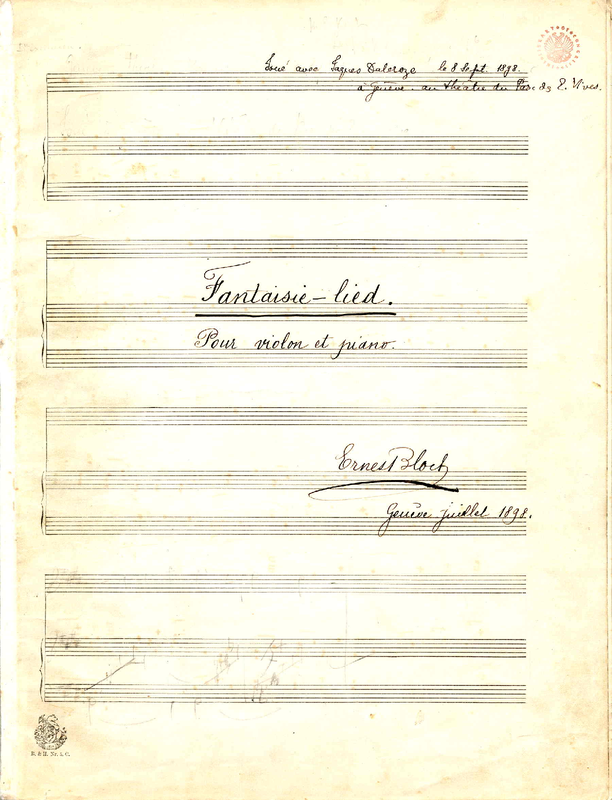 Joué avec Jaques Dalcroze le 8 Sept. 1898.
à Genève - au théâtre du Parc des E. Vives.
Fantaisie-lied.
Pour violon et piano.
Ernest Bloch
Genève juillet 1898.